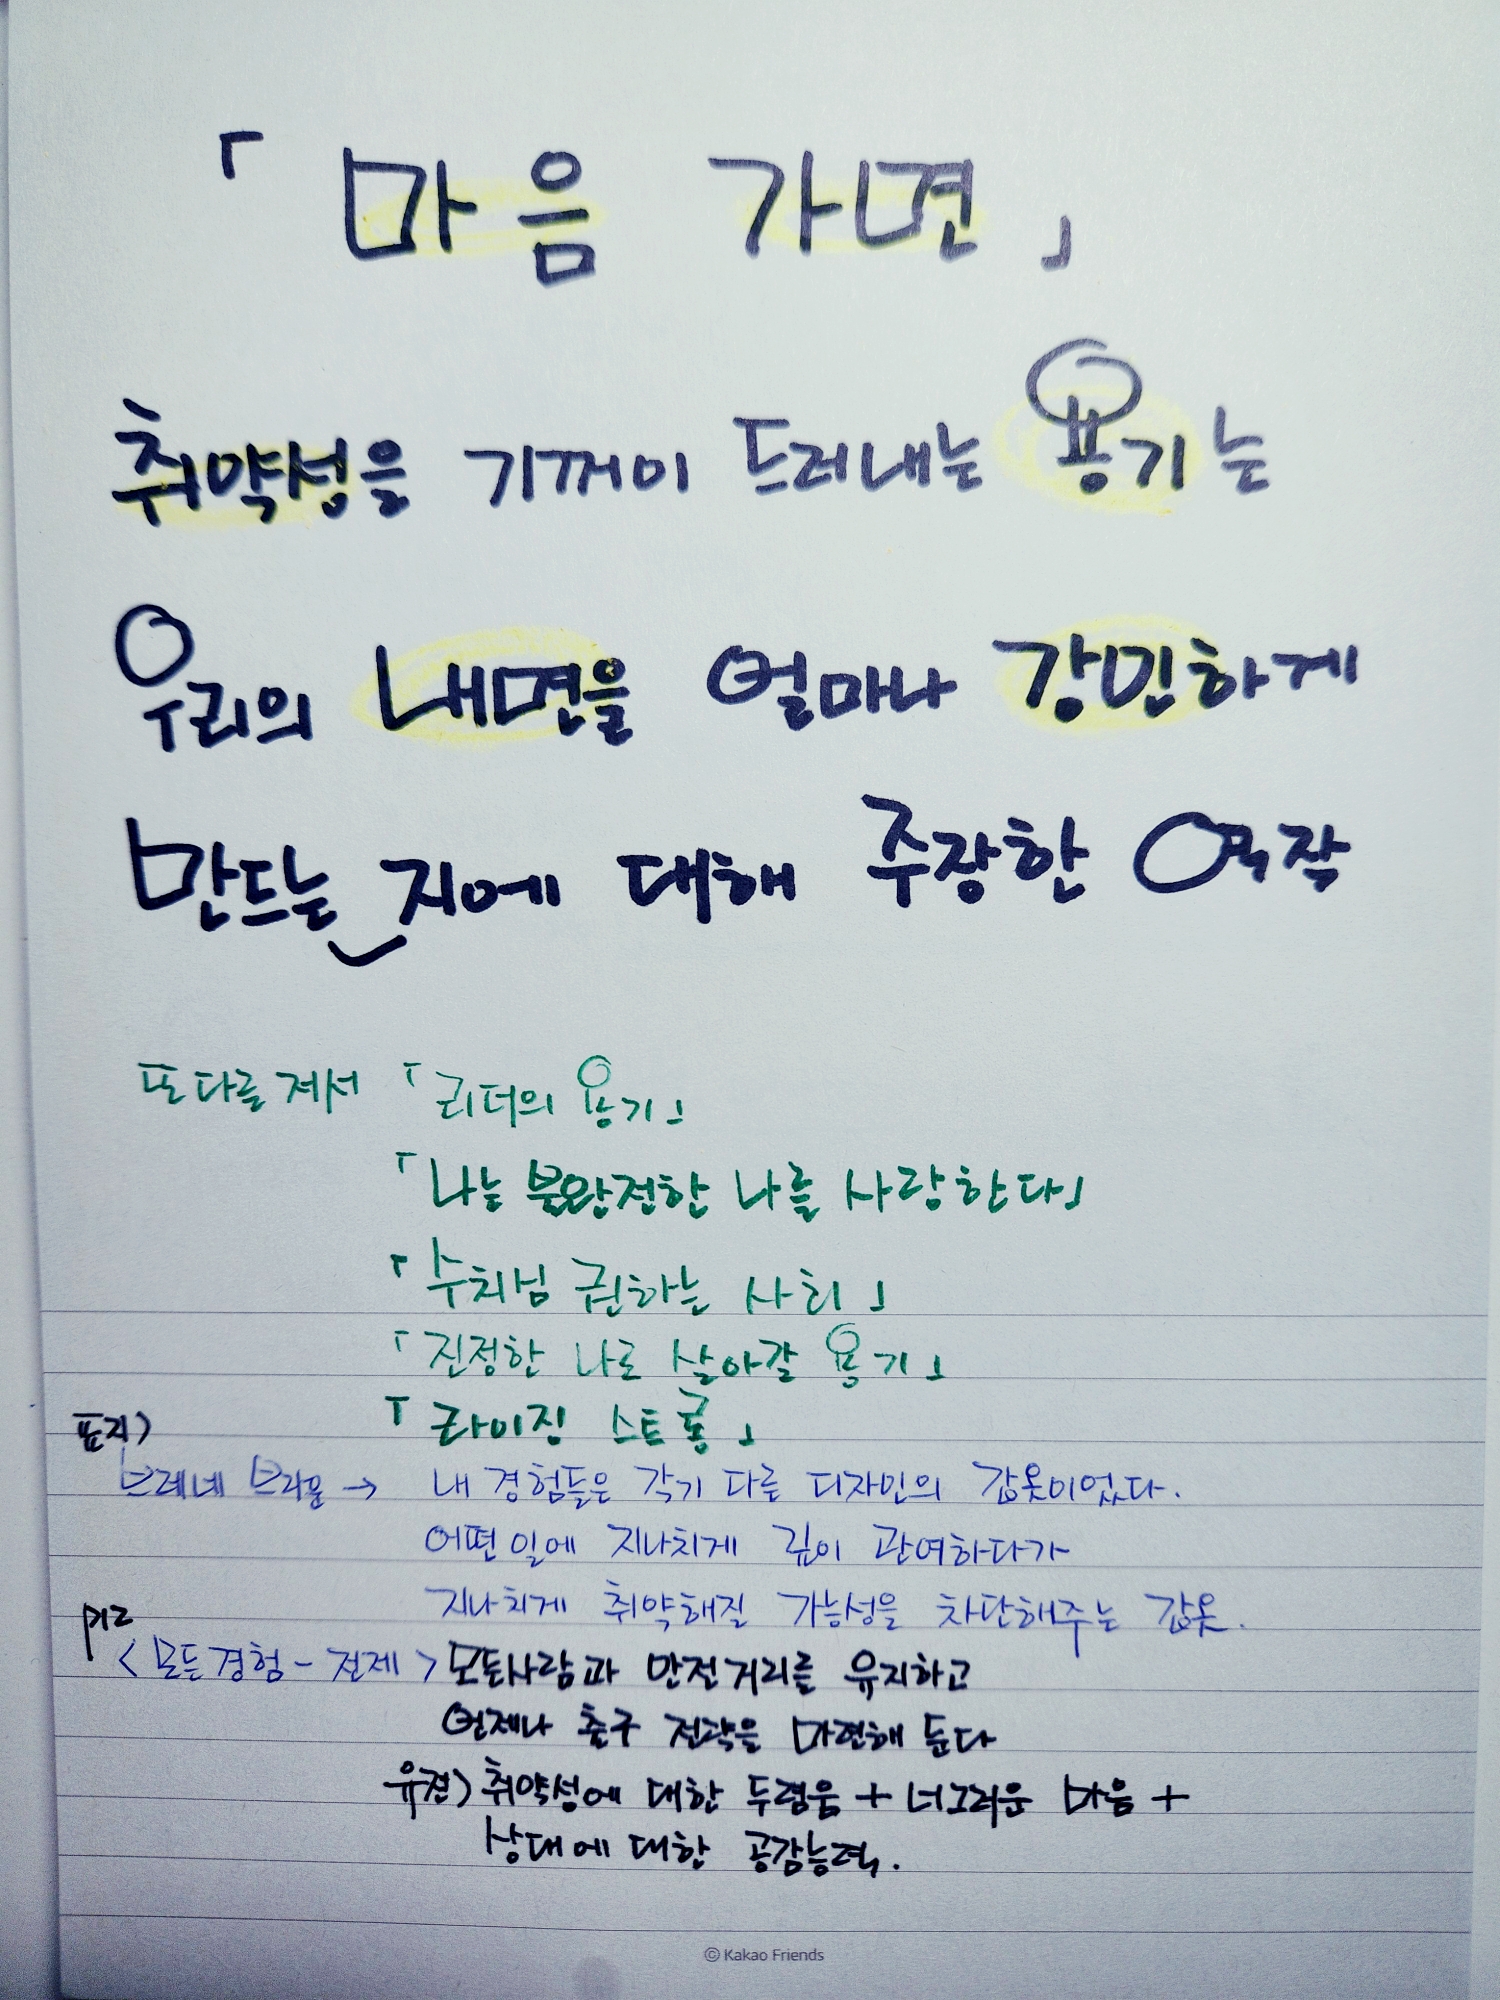 「마음 가면」
취약성을 기꺼이 드러내는 용기는
우리의 내면을 얼마나 강인하게
만드는지에 대해 주장한 역작
또다른 저서 「리더의 용기」
「나는 불완전한 나를 사랑한다」
「수치심 권하는 사회」
「진정한 나로 살아갈 용기」
「라이징 스트롱」
표지)
브레네 브라운 → 내 경험들은 각기 다른 디자인의 갑옷이었다.
어떤 일에 지나치게 깊이 관여하다가
지나치게 취약해질 가능성을 차단해주는 갑옷.
p12
<모든경험 - 전제> 모든사람과 안전거리를 유지하고
언제나 출구 전략을 마련해 둔다
유전) 취약성에 대한 두렴움 + 너그러운 마음 +
상대에 대한 공감능력.
© Kakao Friends